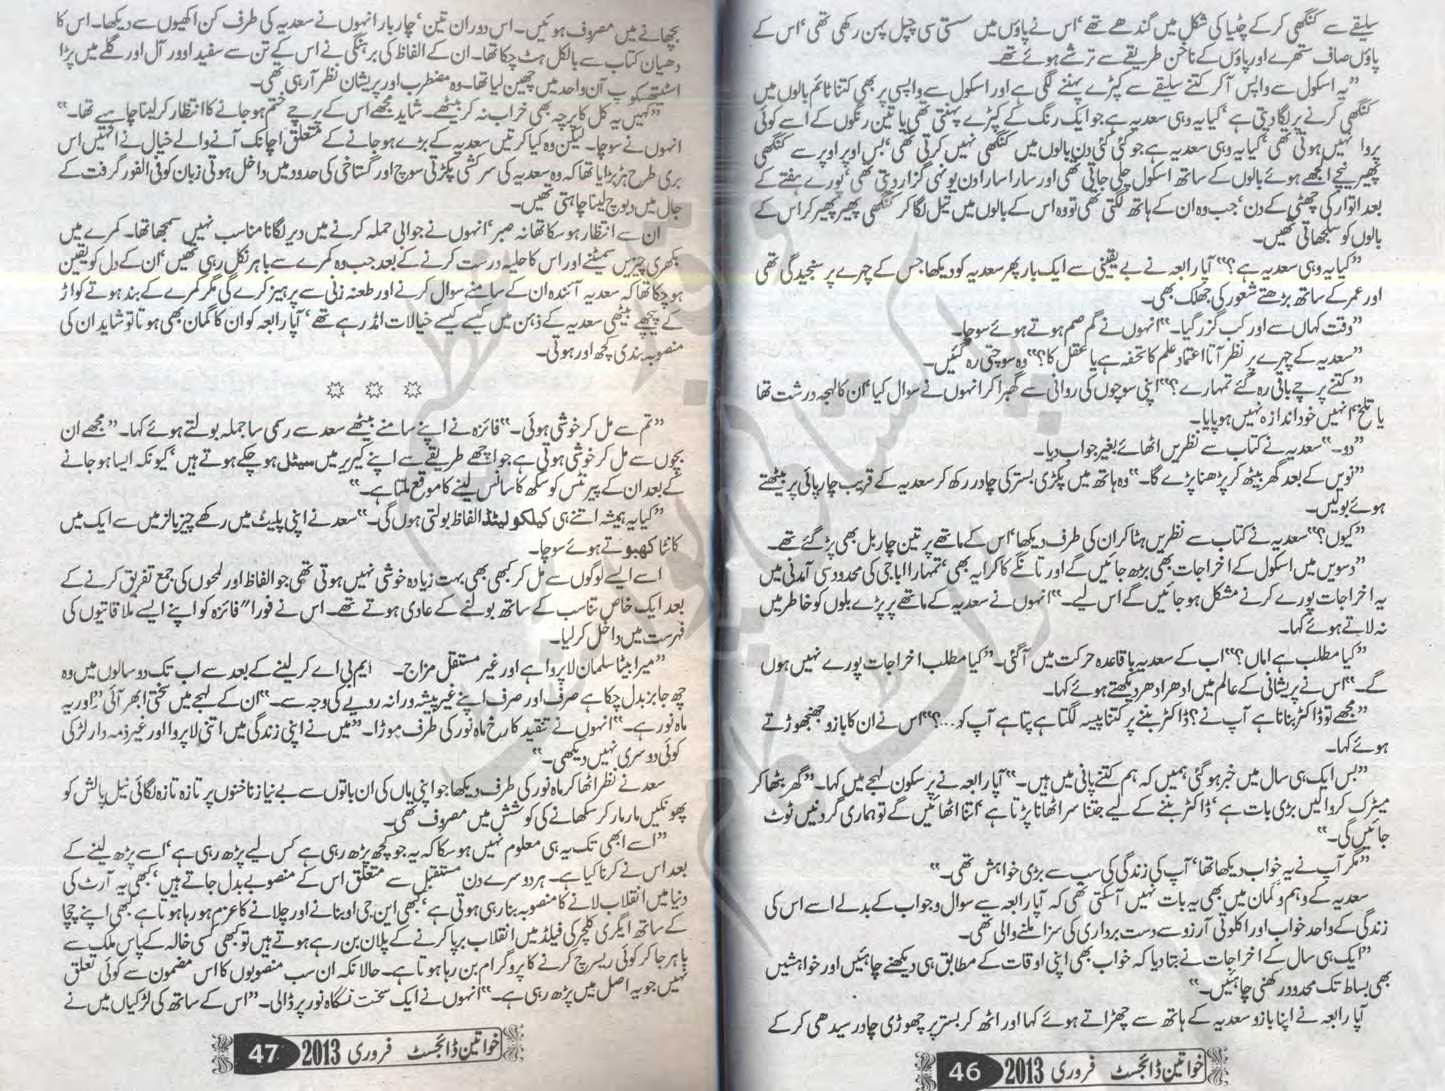 سلیقے سے کنگھی کر کے چٹیا کی شکل میں گندھے تھے‘ اس نے پاؤں میں سستی سی چپل پہن رکھی تھی‘ اس کے
پاؤں صاف ستھرے اور پاؤں کے ناخن طریقے سے ترشے ہوئے تھے۔
”یہ اسکول سے واپس آ کر کتنے سلیقے سے کپڑے پہننے لگی ہے اور اسکول سے واپسی پر بھی کتنا ٹائم بالوں میں
کنگھی کرنے پر لگا دیتی ہے‘ کیا یہ وہی سعدیہ ہے جو ایک رنگ کے کپڑے پہنتی تھی یا تین رنگوں کے اسے کوئی
پروا نہیں ہوتی تھی‘ کیا یہ وہی سعدیہ ہے جو کئی کئی دن بالوں میں کنگھی نہیں کرتی تھی‘ بس اوپر اوپر سے کنگھی
پھیر نیچے الجھے ہوئے بالوں کے ساتھ اسکول چلی جاتی تھی اور سارا سارا دن یونہی گزار دیتی تھی‘ پورے ہفتے کے
بعد اتوار کی چھٹی کے دن‘ جب وہ ان کے ہاتھ لگتی تھی تو وہ اس کے بالوں میں تیل لگا کر کنگھی پھیر پھیر کر اس کے
بالوں کو سلجھاتی تھیں۔
”کیا یہ وہی سعدیہ ہے؟“ آپا رابعہ نے بے یقینی سے ایک بار پھر سعدیہ کو دیکھا جس کے چہرے پر سنجیدگی تھی
اور عمر کے ساتھ بڑھتے شعور کی جھلک بھی۔
”وقت کہاں سے اور کب گزر گیا۔“ انہوں نے گم صم ہوتے ہوئے سوچا۔
”سعدیہ کے چہرے پر نظر آتا اعتماد علم کا تحفہ ہے یا عقل کا؟“ وہ سوچتی رہ گئیں۔
”کتنے پرچے باقی رہ گئے تمہارے؟“ اپنی سوچوں کی روانی سے گھبرا کر انہوں نے سوال کیا‘ ان کا لہجہ درشت تھا
یا تلخ‘ انہیں خود اندازہ نہیں ہو پایا۔
”دو۔“ سعدیہ نے کتاب سے نظریں اٹھائے بغیر جواب دیا۔
”نویں کے بعد گھر بیٹھ کر پڑھنا پڑے گا۔“ وہ ہاتھ میں پکڑی بستر کی چادر رکھ کر سعدیہ کے قریب چارپائی پر بیٹھتے
ہوئے بولیں۔
”کیوں؟“ سعدیہ نے کتاب سے نظریں ہٹا کر ان کی طرف دیکھا‘ اس کے ماتھے پر تین چار بل بھی پڑ گئے تھے۔
”دسویں میں اسکول کے اخراجات بھی بڑھ جائیں گے اور تانگے کا کرایہ بھی‘ تمہارا اباجی کی محدود سی آمدنی میں
یہ اخراجات پورے کرنے مشکل ہو جائیں گے اس لیے۔“ انہوں نے سعدیہ کے ماتھے پر پڑے بلوں کو خاطر میں
نہ لاتے ہوئے کہا۔
”کیا مطلب ہے اماں؟“ اب کے سعدیہ باقاعدہ حرکت میں آ گئی۔ ”کیا مطلب اخراجات پورے نہیں ہوں
گے۔“ اس نے پریشانی کے عالم میں ادھر ادھر دیکھتے ہوئے کہا۔
”مجھے تو ڈاکٹر بنانا ہے آپ نے؟ ڈاکٹر بننے پر کتنا پیسہ لگتا ہے پتا ہے آپ کو...؟“ اس نے ان کا بازو جھنجھوڑتے
ہوئے کہا۔
”بس ایک ہی سال میں خبر ہو گئی ہمیں کہ ہم کتنے پانی میں ہیں۔“ آپا رابعہ نے پرسکون لہجے میں کہا۔ ”گھر بٹھا کر
میٹرک کروا لیں بڑی بات ہے‘ ڈاکٹر بننے کے لیے جتنا سر اٹھانا پڑتا ہے‘ اتنا اٹھائیں گے تو ہماری گردنیں ٹوٹ
جائیں گی۔“
”مگر آپ نے یہ خواب دیکھا تھا‘ آپ کی زندگی کی سب سے بڑی خواہش تھی۔“
سعدیہ کے وہم و گمان میں بھی یہ بات نہیں آ سکتی تھی کہ آپا رابعہ سے سوال و جواب کے بدلے اسے اس کی
زندگی کے واحد خواب اور اکلوتی آرزو سے دست برداری کی سزا ملنے والی تھی۔
”ایک ہی سال کے اخراجات نے بتا دیا کہ خواب بھی اپنی اوقات کے مطابق ہی دیکھنے چاہئیں اور خواہشیں
بھی بساط تک محدود رکھنی چاہئیں۔“
آپا رابعہ نے اپنا بازو سعدیہ کے ہاتھ سے چھڑاتے ہوئے کہا اور اٹھ کر بستر پر چھوڑی چادر سیدھی کر کے
خواتین ڈائجسٹ فروری 2013 46
بچھانے میں مصروف ہوئیں۔ اس دوران تین‘ چار بار انہوں نے سعدیہ کی طرف کن اکھیوں سے دیکھا۔ اس کا
دھیان کتاب سے بالکل ہٹ چکا تھا۔ ان کے الفاظ کی برہنگی نے اس کے تن سے سفید اوور آل اور گلے میں پڑا
اسٹیتھسکوپ آن واحد میں چھین لیا تھا۔ وہ مضطرب اور پریشان نظر آ رہی تھی۔
”کہیں یہ کل کا پرچہ بھی خراب نہ کر بیٹھے۔ شاید مجھے اس کے پرچے ختم ہو جانے کا انتظار کر لینا چاہیے تھا۔“
انہوں نے سوچا۔ لیکن وہ کیا کرتیں سعدیہ کے بڑے ہو جانے کے متعلق اچانک آنے والے خیال نے انہیں اس
بری طرح ہڑبڑایا تھا کہ وہ سعدیہ کی سرکشی پکڑتی سوچ اور گستاخی کی حدود میں داخل ہوتی زبان کو فی الفور گرفت کے
جال میں دبوچ لینا چاہتی تھیں۔
ان سے انتظار ہو سکا تھا نہ صبر‘ انہوں نے جوابی حملہ کرنے میں دیر لگانا مناسب نہیں سمجھا تھا۔ کمرے میں
بکھری چیزیں سمیٹنے اور اس کا حلیہ درست کرنے کے بعد جب وہ کمرے سے باہر نکل رہی تھیں‘ ان کے دل کو یقین
ہو چکا تھا کہ سعدیہ آئندہ ان کے سامنے سوال کرنے اور طعنہ زنی سے پرہیز کرے گی مگر کمرے کے بند ہوتے کواڑ
کے پیچھے بیٹھی سعدیہ کے ذہن میں کیسے کیسے خیالات امڈ رہے تھے‘ آپا رابعہ کو ان کا گمان بھی ہوتا تو شاید ان کی
منصوبہ بندی کچھ اور ہوتی۔
”تم سے مل کر خوشی ہوئی۔“ فائزہ نے اپنے سامنے بیٹھے سعد سے رسمی سا جملہ بولتے ہوئے کہا۔ ”مجھے ان
بچوں سے مل کر خوشی ہوتی ہے جو اچھے طریقے سے اپنے کیریر میں سیٹل ہو چکے ہوتے ہیں‘ کیونکہ ایسا ہو جانے
کے بعد ان کے پیرنٹس کو سکھ کا سانس لینے کا موقع ملتا ہے۔“
”کیا یہ ہمیشہ اتنے ہی کیلکولیٹڈ الفاظ بولتی ہوں گی۔“ سعد نے اپنی پلیٹ میں رکھے چیز بالز میں سے ایک میں
کانٹا کھبوتے ہوئے سوچا۔
اسے ایسے لوگوں سے مل کر کبھی بھی بہت زیادہ خوشی نہیں ہوتی تھی جو الفاظ اور لمحوں کی جمع تفریق کرنے کے
بعد ایک خاص تناسب کے ساتھ بولنے کے عادی ہوتے تھے۔ اس نے فورا“ فائزہ کو اپنے ایسے ملاقاتیوں کی
فہرست میں داخل کر لیا۔
”میرا بیٹا سلمان لاپروا ہے اور غیر مستقل مزاج۔ ایم بی اے کر لینے کے بعد سے اب تک دو سالوں میں وہ
چھ جابز بدل چکا ہے صرف اور صرف اپنے غیر پیشہ ورانہ رویے کی وجہ سے۔“ ان کے لہجے میں سختی ابھر آئی ”اور یہ
ماہ نور ہے۔“ انہوں نے تنقید کا رخ ماہ نور کی طرف موڑا۔ ”میں نے اپنی زندگی میں اتنی لاپروا اور غیر ذمہ دار لڑکی
کوئی دوسری نہیں دیکھی۔“
سعد نے نظر اٹھا کر ماہ نور کی طرف دیکھا جو اپنی ماں کی ان باتوں سے بے نیاز ناخنوں پر تازہ تازہ لگائی نیل پالش کو
پھونکیں مار مار کر سکھانے کی کوشش میں مصروف تھی۔
”اسے ابھی تک یہ ہی معلوم نہیں ہو سکا کہ یہ جو کچھ پڑھ رہی ہے کس لیے پڑھ رہی ہے‘ اسے پڑھ لینے کے
بعد اس نے کرنا کیا ہے۔ ہر دوسرے دن مستقبل سے متعلق اس کے منصوبے بدل جاتے ہیں‘ کبھی یہ آرٹ کی
دنیا میں انقلاب لانے کا منصوبہ بنا رہی ہوتی ہے‘ کبھی این جی او بنانے اور چلانے کا عزم ہو رہا ہوتا ہے کبھی اپنے چچا
کے ساتھ ایگری کلچر کی فیلڈ میں انقلاب برپا کرنے کے پلان بن رہے ہوتے ہیں تو کبھی کسی خالہ کے پاس ملک سے
باہر جا کر کوئی ریسرچ کرنے کا پروگرام بن رہا ہوتا ہے۔ حالانکہ ان سب منصوبوں کا اس مضمون سے کوئی تعلق
نہیں جو یہ اصل میں پڑھ رہی ہے۔“ انہوں نے ایک سخت نگاہ نور پر ڈالی۔ ”اس کے ساتھ کی لڑکیاں میں نے
خواتین ڈائجسٹ فروری 2013 47